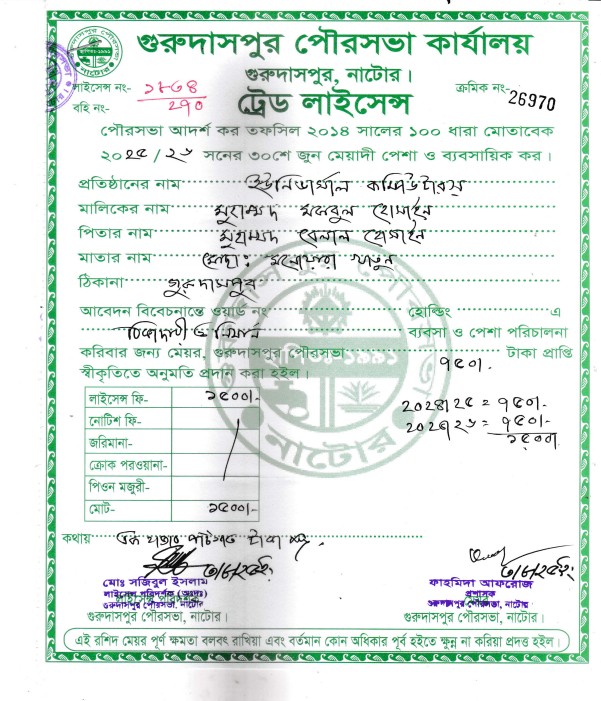 গুরুদাসপুর পৌরসভা কার্যালয়
গুরুদাসপুর, নাটোর।
লাইসেন্স নং- ১৮৩৪
ক্রমিক নং- 26970
বহি নং- ২৭০
ট্রেড লাইসেন্স
পৌরসভা আদর্শ কর তফসিল ২০১৪ সালের ১০০ ধারা মোতাবেক
২০২৫/২৬ সনের ৩০শে জুন মেয়াদী পেশা ও ব্যবসায়িক কর।
প্রতিষ্ঠানের নাম ইউনিভার্সাল কম্পিউটারস্
মালিকের নাম মুহাম্মদ মকবুল হোসাইন
পিতার নাম মুহাম্মদ বেলাল হোসাইন
মাতার নাম মোছা: মনোয়ারা খাতুন
ঠিকানা গুরুদাসপুর
আবেদন বিবেচনান্তে ওয়ার্ড নং হোল্ডিং এ
ঠিকাদারী ও ব্যবসা ও পেশা পরিচালনা
করিবার জন্য মেয়র, গুরুদাসপুর পৌরসভা ৭৫০/- টাকা প্রাপ্তি
স্বীকৃতিতে অনুমতি প্রদান করা হইল।
লাইসেন্স ফি- ১৫০০/-
নোটিশ ফি-
জরিমানা-
ক্রোক পরওয়ানা-
পিওন মজুরী-
মোট- ১৫০০/-
২০২৪/২৫ = ৭৫০/-
২০২৫/২৬ = ৭৫০/-
১৫০০/-
কথায় এক হাজার পাঁচশত টাকা
মোঃ সজিবুল ইসলাম
লাইসেন্স পরিদর্শক
গুরুদাসপুর পৌরসভা, নাটোর
গুরুদাসপুর পৌরসভা, নাটোর।
ফাহমিদা আফরোজ
প্রশাসক
গুরুদাসপুর পৌরসভা, নাটোর
গুরুদাসপুর পৌরসভা, নাটোর।
এই রশিদ মেয়র পূর্ণ ক্ষমতা বলবৎ রাখিয়া এবং বর্তমান কোন অধিকার পূর্ব হইতে ক্ষুন্ন না করিয়া প্রদত্ত হইল।